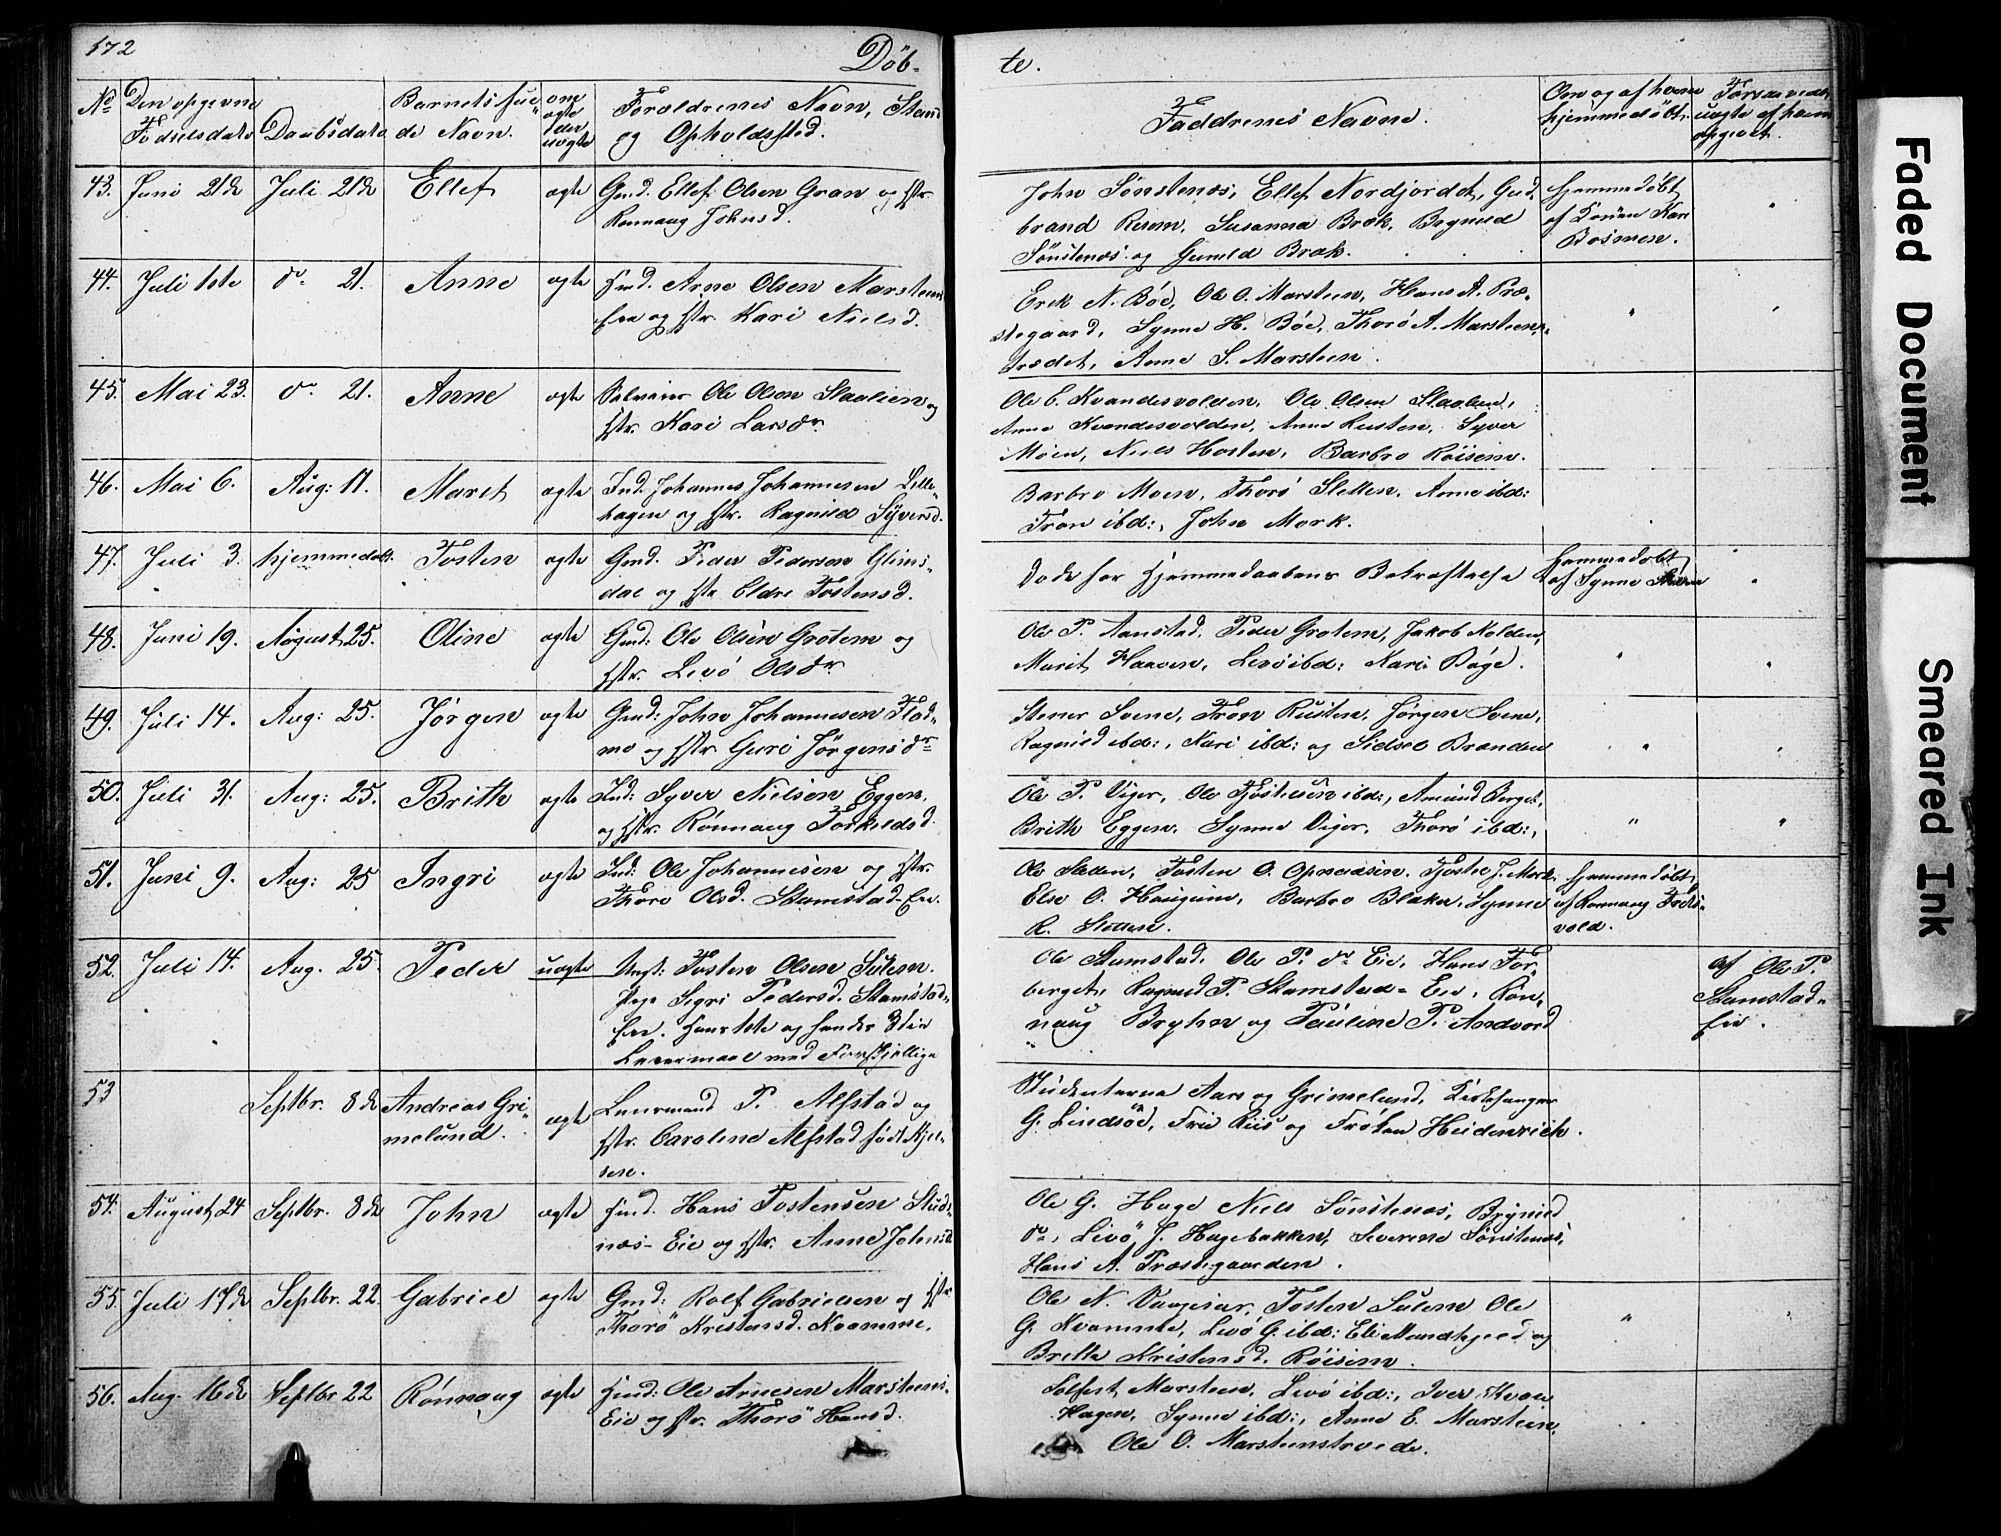 172
Döb-
te.
No
Den opgevne
Fødselsdato
Daabsdato
Barnets fue-
de Navn.
om
ægte
eller
uægte
Forældrenes Navn, Stand
og Opholdssted.
Faddrenes Navne.
Om og af hvem
hjemmedøbt.
uægte af hvem
opgivet.
43. Juni 21de Juli 21de Ellef ægte Gmd. Ellef Olsen Gran og Hstr.
Rønnaug Johnsd.
John Sønstenæs, Ellef Nordjordet, Gud-
brand Rusm, Susanna Bræk, Brynild
Sønstenæs og Gunild Bræk.
Hjemmedøbt
af Konen Kari
Bosmen.
"
44. Juli 1ste do 21. Anne ægte Hmd. Arne Olsen Marsteen
Eie og Hstr Kari Nielsd.
Erik N. Böe, Ole O. Marsteen, Hans A. Præ-
stegaard, Synne H. Böe, Thorö A. Marsteen-
trædet, Anne S. Marsteen.
"
"
45. Mai 23. do 21. Anne ægte Selveier Ole Olsen Staalien og
Hstr. Kari Larsdr.
Ole E. Kvandesvolden, Ole Olsen Staalien,
Anne Kvandesvolden, Anne Rusten, Syver
Möen, Niels Horten, Barbro Röisem.
46. Mai 6. Aug: 11. Marit ægte Ind. Johannes Johannesen Lille-
hagen og Hstr. Ragnild Syversd.
Barbro Moen, Thorö Sletten, Anne ibd:
Tron ibd:, John Mork.
47. Juli 3. hjemmedøbt. Tosten ægte Gmd. Peder Pedersen Glims-
dal og Hstr Eldri Tostensd.
Døde før Hjemmedaabens Bekræftelse
Hjemmedøbt
af Synne
"
"
48. Juni 19. August 25. Oline ægte Gmd: Ole Olsen Grotem og
Hstr. Livö Olsdr
Ole P. Aanstad, Peder Grotem, Jakob Kolden,
Marit Haaven, Livö ibd: Kari Bøge.
"
"
49. Juli 14. Aug: 25. Jørgen ægte Gmd: John Johannesen Flad-
mo og Hstr Guri Jørgensdr
Stener Svene, Tron Rusten, Jørgen Svene,
Ragnild ibd:, Kari ibd: og Sidsel Brænden
"
"
50. Juli 31. Aug: 25. Brith ægte Ind: Syver Nielsen Eggen,
og Hstr. Rønnaug Torkildsd.
Ole P. Viger, Ole Tjøstelsen ibd:, Amund Berget,
Brith Eggen, Synne Viger, Thorö ibd:,
"
"
51. Juni 9. Aug: 25 Ingri ægte Ind: Ole Johannesen og Hstr.
Thore Olsd. Stamstad-Eie.
Ole Sletten, Tosten O. Tjostel J. Mork
Else O. Haugum, Barbro Blaker, Synne
R. Sletten.
Hjemmedøbt
af Rønnaug
vold.
52. Juli 14. Aug. 25. Peder uægte Ungk: Tosten Olsen Sulem.
Pige Sigri Pedersd. Stamstad-
Eie. Hans 1ste og hendes 3die
Leiermaal med Forskjellige
Ole Stamstad, Ole P. do Eie, Hans For-
berget, Ragnild P. Stamstad-Eie, Røn-
naug Bryhn og Pauline P. Andvord
af Ole P.
Stamstad-
Eie.
53 Septbr. 8de Andreas Gri-
melund. ægte Lensmand P. Alfstad og
Hstr. Caroline Alfstad født Kjel-
sen.
Studenterne Aars og Grimelund, Kirkesanger
G. Lindsöe, Fru Riis og Frøken Heidenreich.
54. August 24 Septbr. 8de John ægte Hmd. Hans Tostensen Studs-
næs-Eie og Hstr. Anne Johnsd
Ole G. Hage Niels Sønstenæs, Brynild
do, Livö J. Hagebakken, Severine Sønstenæs,
Hans A. Præstegaarden.
55. Juli 17de Septbr. 22. Gabriel ægte Gmd: Rolf Gabrielsen og Hstr
Thorö Kristensd. Kvamme.
Ole N. Vangesar, Tosten Sulem Ole
G. Kvamme, Livö G. ibd: Eli Mundhjeld og
Britta Kristensd. Röisem.
"
56. Aug. 16de Septbr 22 Rønnaug ægte Hmd: Ole Arnesen Marsteens-
Eie og Hstr. Thorö Hansd.
Solfest Marsteen, Livö ibd:, Iver Kvam
Hagen, Synne ibd:, Anne E. Marsteen,
Ole O. Marsteenstræde.
Faded Document
Smeared Ink